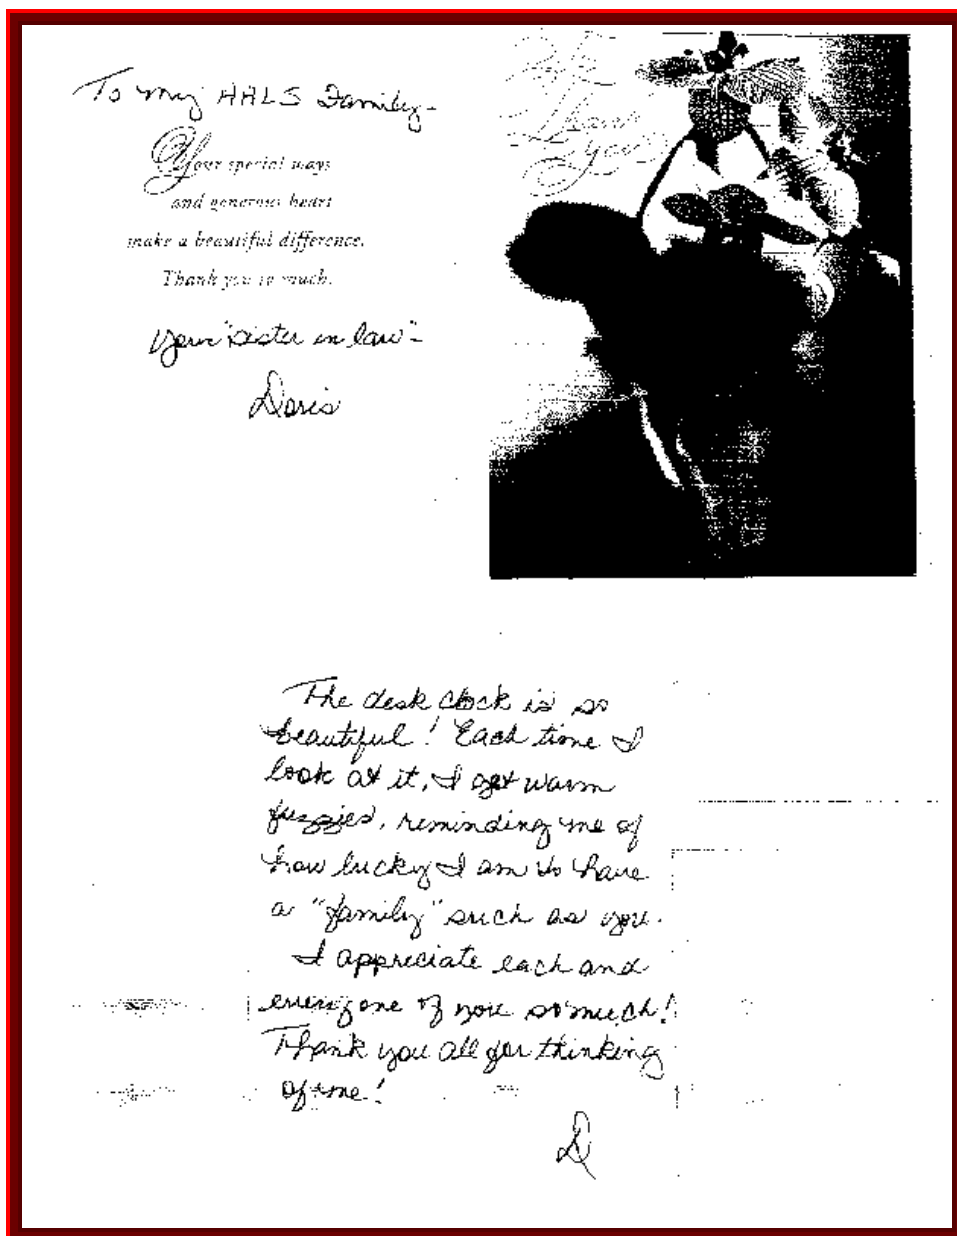 To my HALS Family-
Your special ways
and generous heart
make a beautiful difference.
Thank you so much.
your "sister in law"-
Doris
Thank
you
The desk clock is so
beautiful! Each time I
look at it, I get warm
fuzzies, reminding me of
how lucky I am to have
a "family" such as you.
I appreciate each and
everyone of you so much!
Thank you all for thinking
of me!
D